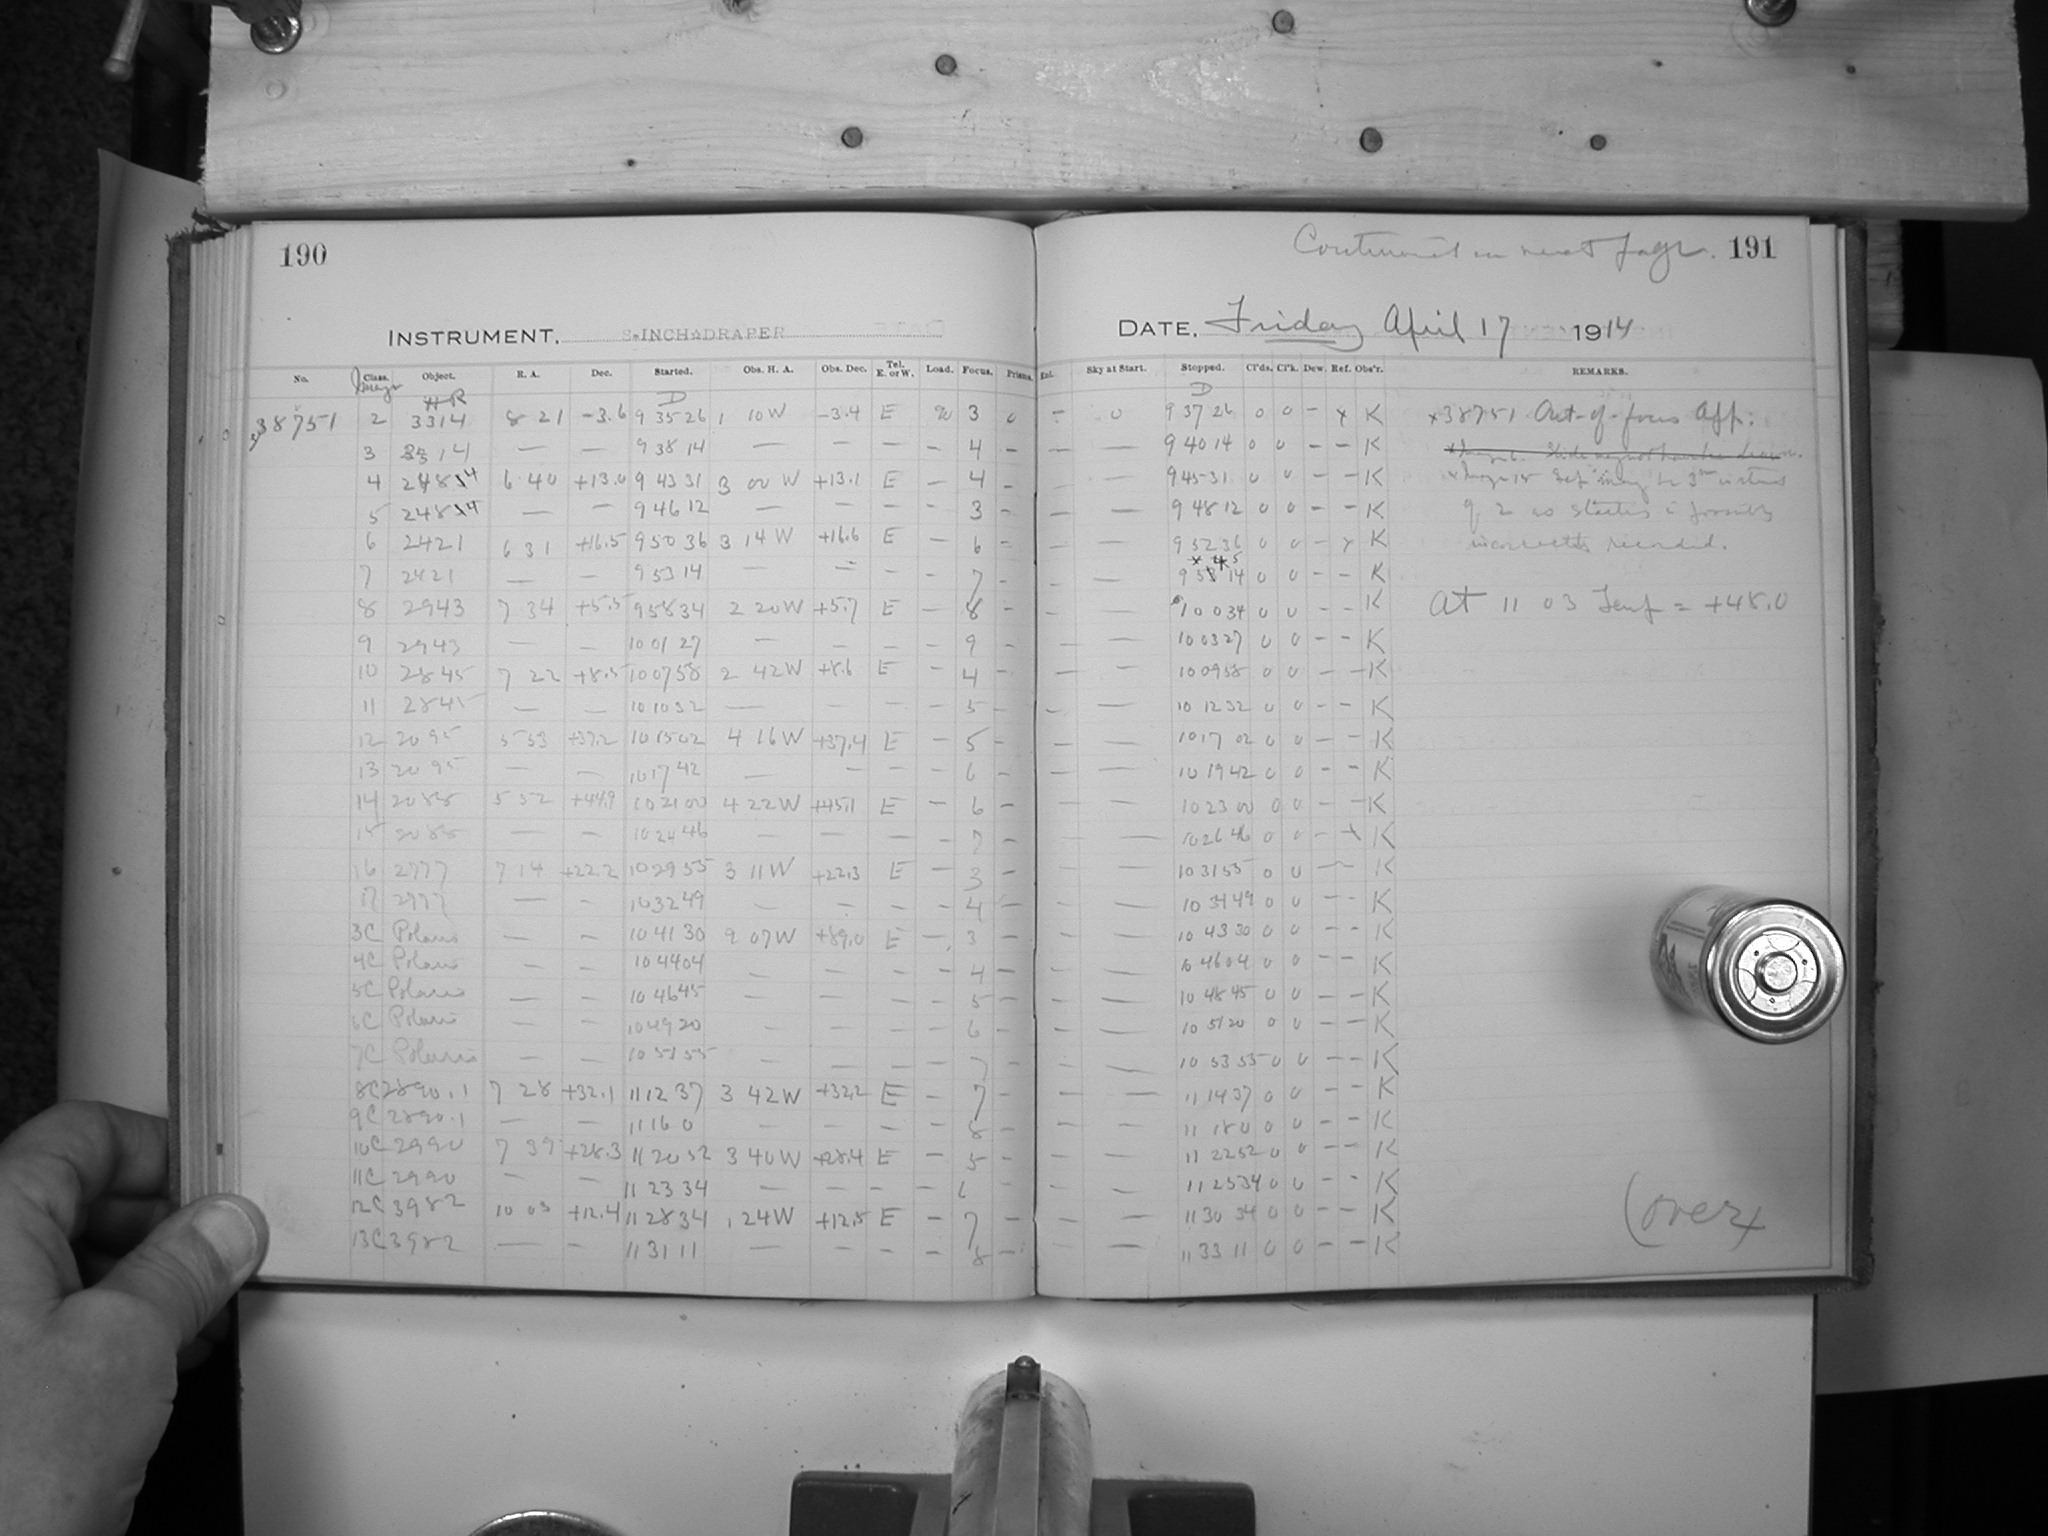 190
Continued on next page. 191
INSTRUMENT, 8-INCH DRAPER
DATE, Friday April 17 1914
No. Class. Object. R. A. Dec. Started. Obs. H. A. Obs. Dec. Tel. E. or W. Load. Focus. Prisms. Enl. Sky at Start. Stopped. Cl'ds. Cl'k. Dew. Ref. Obs'r. REMARKS.
Image HR D D
38751 2 3314 8 21 -3.6 9 35 26 1 10 W -3.4 E 3 0 - 0 9 37 26 0 0 - x K x38751 Out-of-focus App:
3 3314 — — 9 38 14 — — - - 4 - — — 9 40 14 0 0 - - K
4 6 40 +13.0 9 43 31 3 00 W +13.1 E - 4 - — — 9 45 31 0 0 - - K
5 — — 9 46 12 — — - - 3 - — — 9 48 12 0 0 - - K
6 2421 6 31 +16.5 9 50 36 3 14 W +16.6 E - 6 - — — 9 52 36 0 0 - x K incorrectly recorded.
7 2421 — — 9 53 14 — — - - 7 - — — 14 0 0 - - K
8 2943 7 34 +5.5 9 58 34 2 20 W +5.7 E - 8 - — — 10 0 34 0 0 - - K At 11 03 Temp = +48.0
9 2943 — — 10 01 27 — — - - 9 - — — 10 03 27 0 0 - - K
10 2845 7 22 +8.5 10 07 58 2 42 W +8.6 E - 4 - — — 10 09 58 0 0 - - K
11 2845 — — 10 10 32 — — - - 5 - — — 10 12 32 0 0 - - K
12 2095 5 53 +37.2 10 15 02 4 16 W +37.4 E - 5 - — — 10 17 02 0 0 - - K
13 2095 — — 10 17 42 — — - - 6 - — — 10 19 42 0 0 - - K
14 2088 5 52 +44.9 10 21 00 4 22 W +45.1 E - 6 - — — 10 23 00 0 0 - - K
15 2088 — — 10 24 46 — — - - 7 - — — 10 26 46 0 0 - x K
16 2777 7 14 +22.2 10 29 55 3 11 W +22.3 E - 3 - — — 10 31 55 0 0 - - K
17 2777 — — 10 32 49 — — - - 4 - — — 10 34 49 0 0 - - K
3C Polaris — — 10 41 30 9 07 W +89.0 E - 3 - — — 10 43 30 0 0 - - K
4C Polaris — — 10 44 04 — — - - 4 - — — 10 46 04 0 0 - - K
5C Polaris — — 10 46 45 — — - - 5 - — — 10 48 45 0 0 - - K
6C Polaris — — 10 49 20 — — - - 6 - — — 10 51 20 0 0 - - K
7C Polaris — — 10 51 55 — — - - 7 - — — 10 53 55 0 0 - - K
8C 2890.1 7 28 +32.1 11 12 37 3 42 W +32.2 E - 7 - — — 11 14 37 0 0 - - K
9C 2890.1 — — 11 16 0 — — - - 8 - — — 11 18 0 0 0 - - K
10C 2990 7 39 +28.3 11 20 52 3 40 W +28.4 E - 5 - — — 11 22 52 0 0 - - K
11C 2990 — — 11 23 34 — — - - 6 - — — 11 25 34 0 0 - - K
12C 3982 10 03 +12.4 11 28 34 1 24 W +12.5 E - 7 - — — 11 30 34 0 0 - - K (over)
13C 3982 — — 11 31 11 — — - - 8 - — — 11 33 11 0 0 - - K